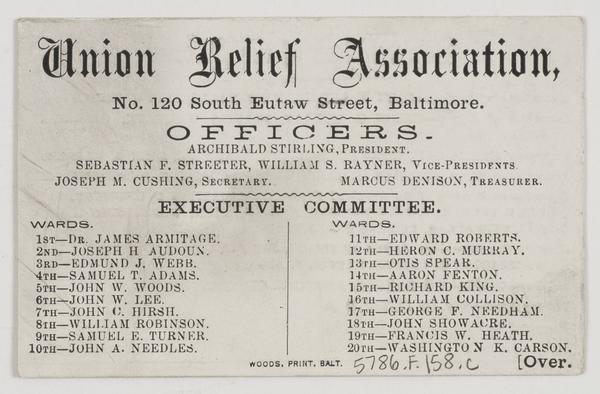 Union Relief Association,
No. 120 South Eutaw Street, Baltimore.
OFFICERS.
ARCHIBALD STIRLING, PRESIDENT.
SEBASTIAN F. STREETER, WILLIAM S. RAYNER, VICE-PRESIDENTS.
JOSEPH M. CUSHING, SECRETARY. MARCUS DENISON, TREASURER.
EXECUTIVE COMMITTEE.
WARDS.
1ST—DR. JAMES ARMITAGE.
2ND—JOSEPH H AUDOUN.
3RD—EDMUND J. WEBB.
4TH—SAMUEL T. ADAMS.
5TH—JOHN W. WOODS.
6TH—JOHN W. LEE.
7TH—JOHN C. HIRSH.
8TH—WILLIAM ROBINSON.
9TH—SAMUEL E. TURNER.
10TH—JOHN A. NEEDLES.
WARDS.
11TH—EDWARD ROBERTS.
12TH—HERON C. MURRAY.
13TH—OTIS SPEAR.
14TH—AARON FENTON.
15TH—RICHARD KING.
16TH—WILLIAM COLLISON.
17TH—GEORGE F. NEEDHAM.
18TH—JOHN SHOWACRE.
19TH—FRANCIS W. HEATH.
20TH—WASHINGTON K. CARSON.
WOODS, PRINT. BALT. 5786.F.158.c [Over.